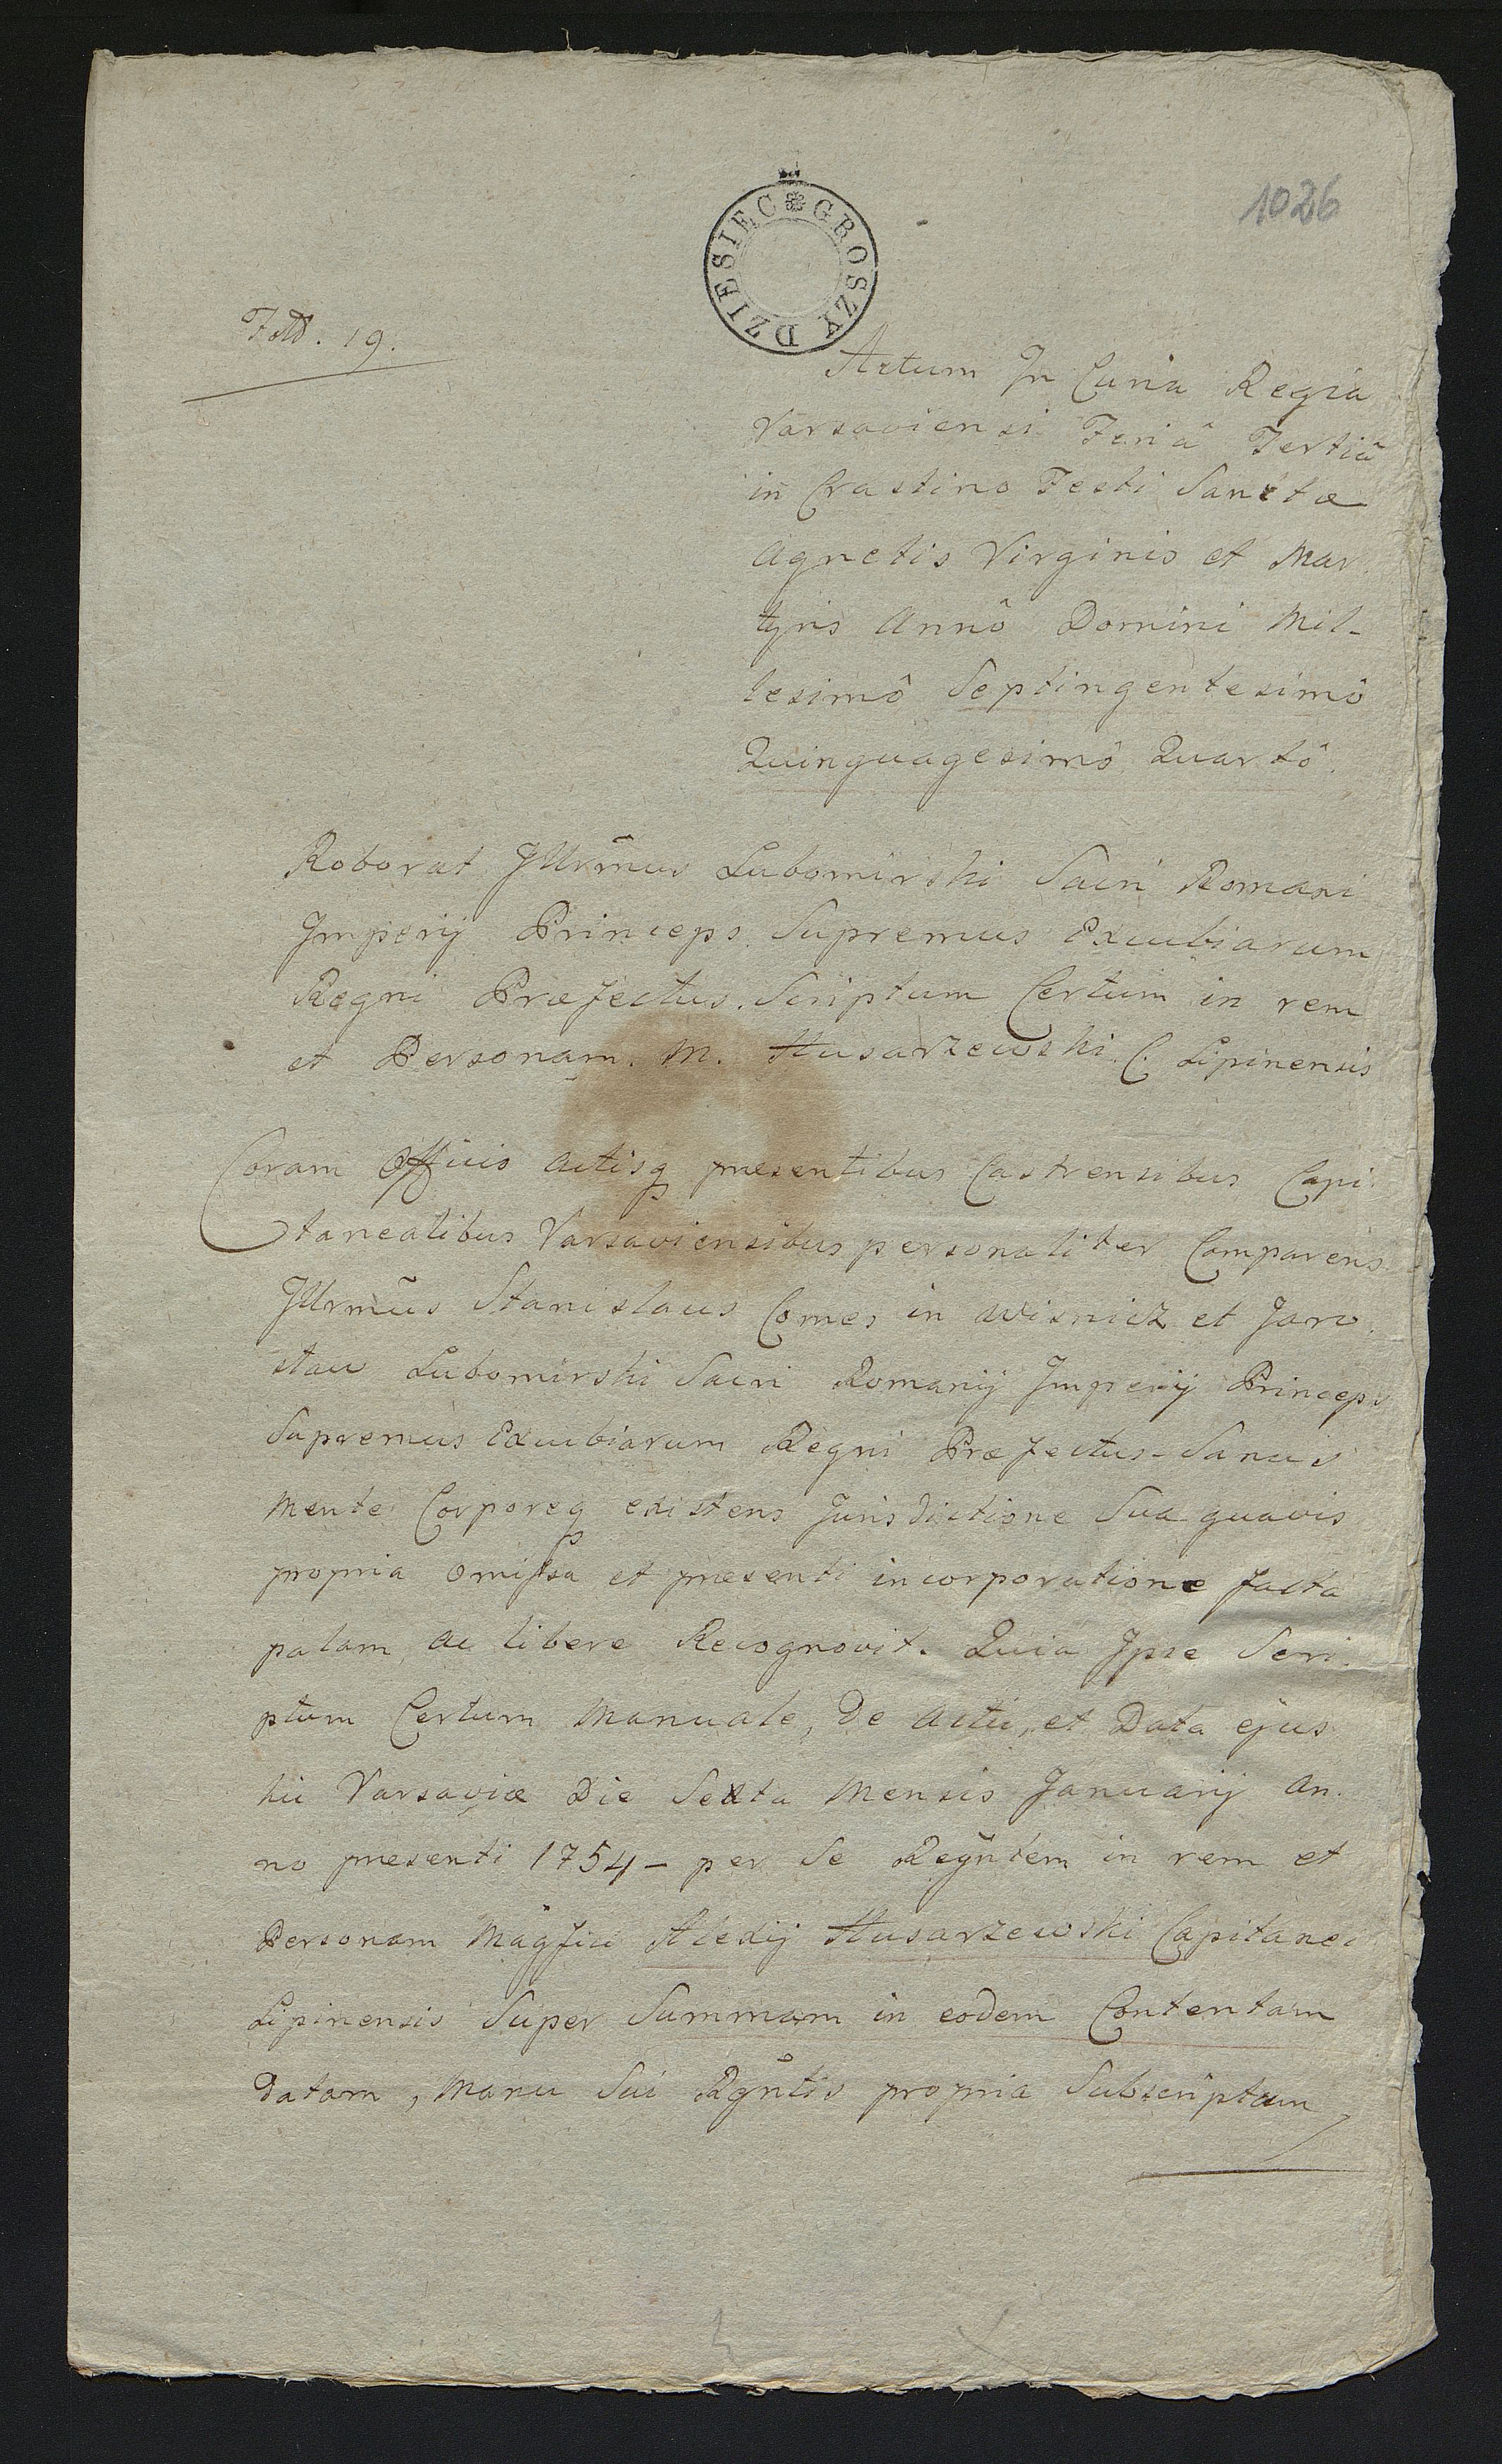 1026
DZIESIEC GROSZY
19.
Actum In Curia Regia
Varsaviensi Feriâ Tertiâ
in Crastino Festi Sanctæ
Agnetis Virginis et Mar
tyris Annô Domini Mil-
lesimô Septingentesimô
Quinquagesimô Quartô.
Roborat Jllrm̃us Lubomirski Sacri Romani
Jmperij Princeps Supremus Excubiarum
Regni Præfectus. Scriptum Certum in rem
et Personam. M. Husarzewski C. Lipinensis
Coram Officio Actisq presentibus Castrensibus Capi
taneatibus Varsaviensibus personaliter Comparens
Jllrmũs Stanislaus Comes in Wisnicz et Jaro
slaw Lubomirski Sacri Romanij Jmperij Princeps
Supremus Excubiarum Regni Præfectus - Sanus
Mente Corporeq existens Jurisdictione Sua quavis
propria omissa et presenti incorporatione facta
palam ac libere Recognovit. Quia Jpse Scri
ptum Certum Manuale, De Actu, et Data ejus
hic Varsaviæ Die Sexta Mensis Januarij An.
no presenti 1754 - per Se Regñtem in rem et
Personam Magfici Alexij Husarzewski Capitanei
Lipinensis Super Summam in eodem Contentam
Datam, Manu Sui Rgñtis propria Subscriptum